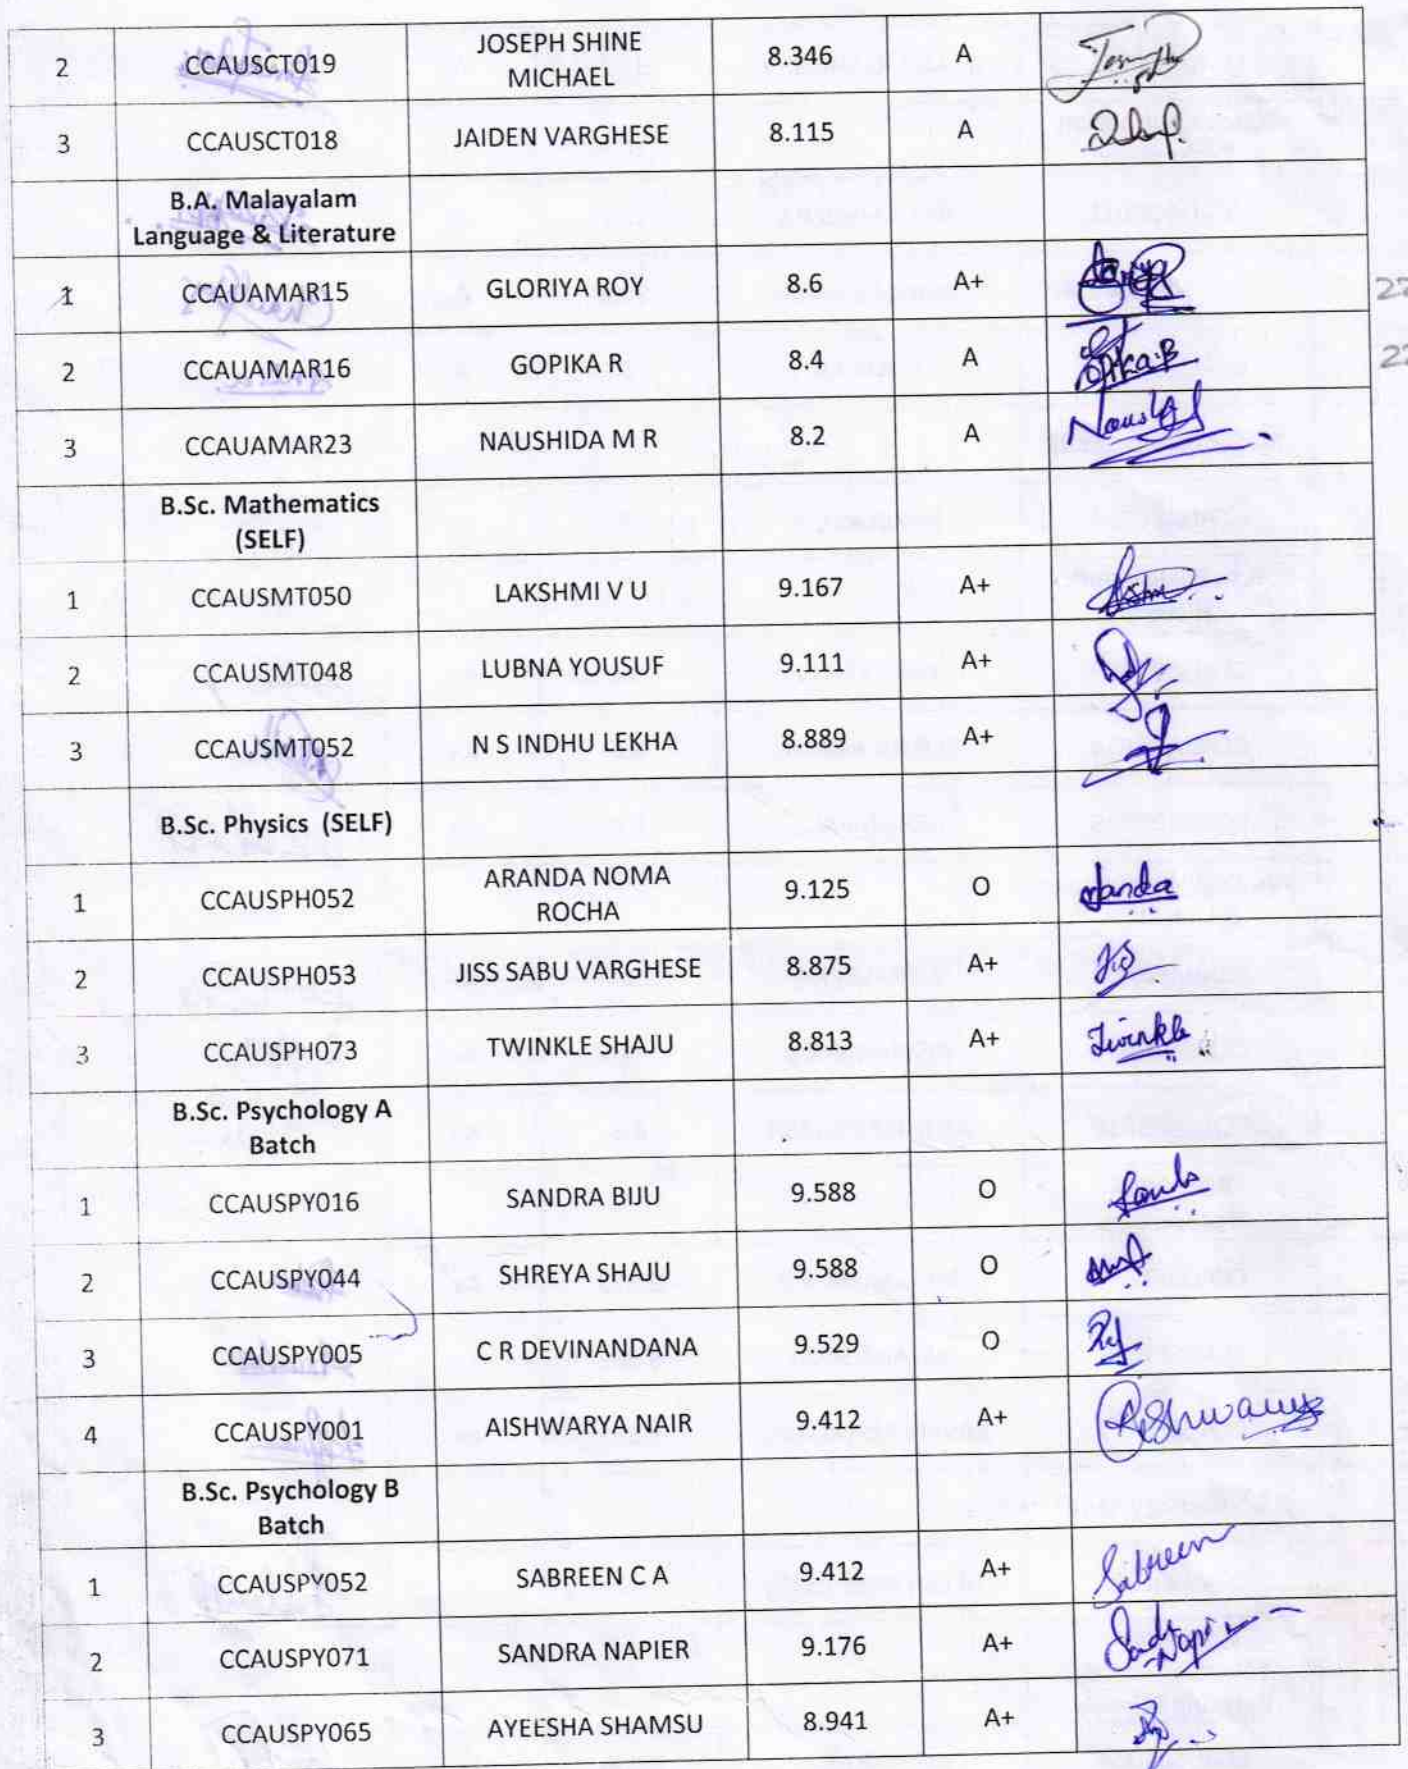 2 CCAUSCT019 JOSEPH SHINE MICHAEL 8.346 A
3 CCAUSCT018 JAIDEN VARGHESE 8.115 A
B.A. Malayalam
Language & Literature
1 CCAUAMAR15 GLORIYA ROY 8.6 A+
2 CCAUAMAR16 GOPIKA R 8.4 A
3 CCAUAMAR23 NAUSHIDA M R 8.2 A
B.Sc. Mathematics
(SELF)
1 CCAUSMT050 LAKSHMI V U 9.167 A+
2 CCAUSMT048 LUBNA YOUSUF 9.111 A+
3 CCAUSMT052 N S INDHU LEKHA 8.889 A+
B.Sc. Physics (SELF)
1 CCAUSPH052 ARANDA NOMA ROCHA 9.125 O
2 CCAUSPH053 JISS SABU VARGHESE 8.875 A+
3 CCAUSPH073 TWINKLE SHAJU 8.813 A+ Twinkle
B.Sc. Psychology A
Batch
1 CCAUSPY016 SANDRA BIJU 9.588 O
2 CCAUSPY044 SHREYA SHAJU 9.588 O
3 CCAUSPY005 C R DEVINANDANA 9.529 O
4 CCAUSPY001 AISHWARYA NAIR 9.412 A+
B.Sc. Psychology B
Batch
1 CCAUSPY052 SABREEN C A 9.412 A+ Sabreen
2 CCAUSPY071 SANDRA NAPIER 9.176 A+
3 CCAUSPY065 AYEESHA SHAMSU 8.941 A+